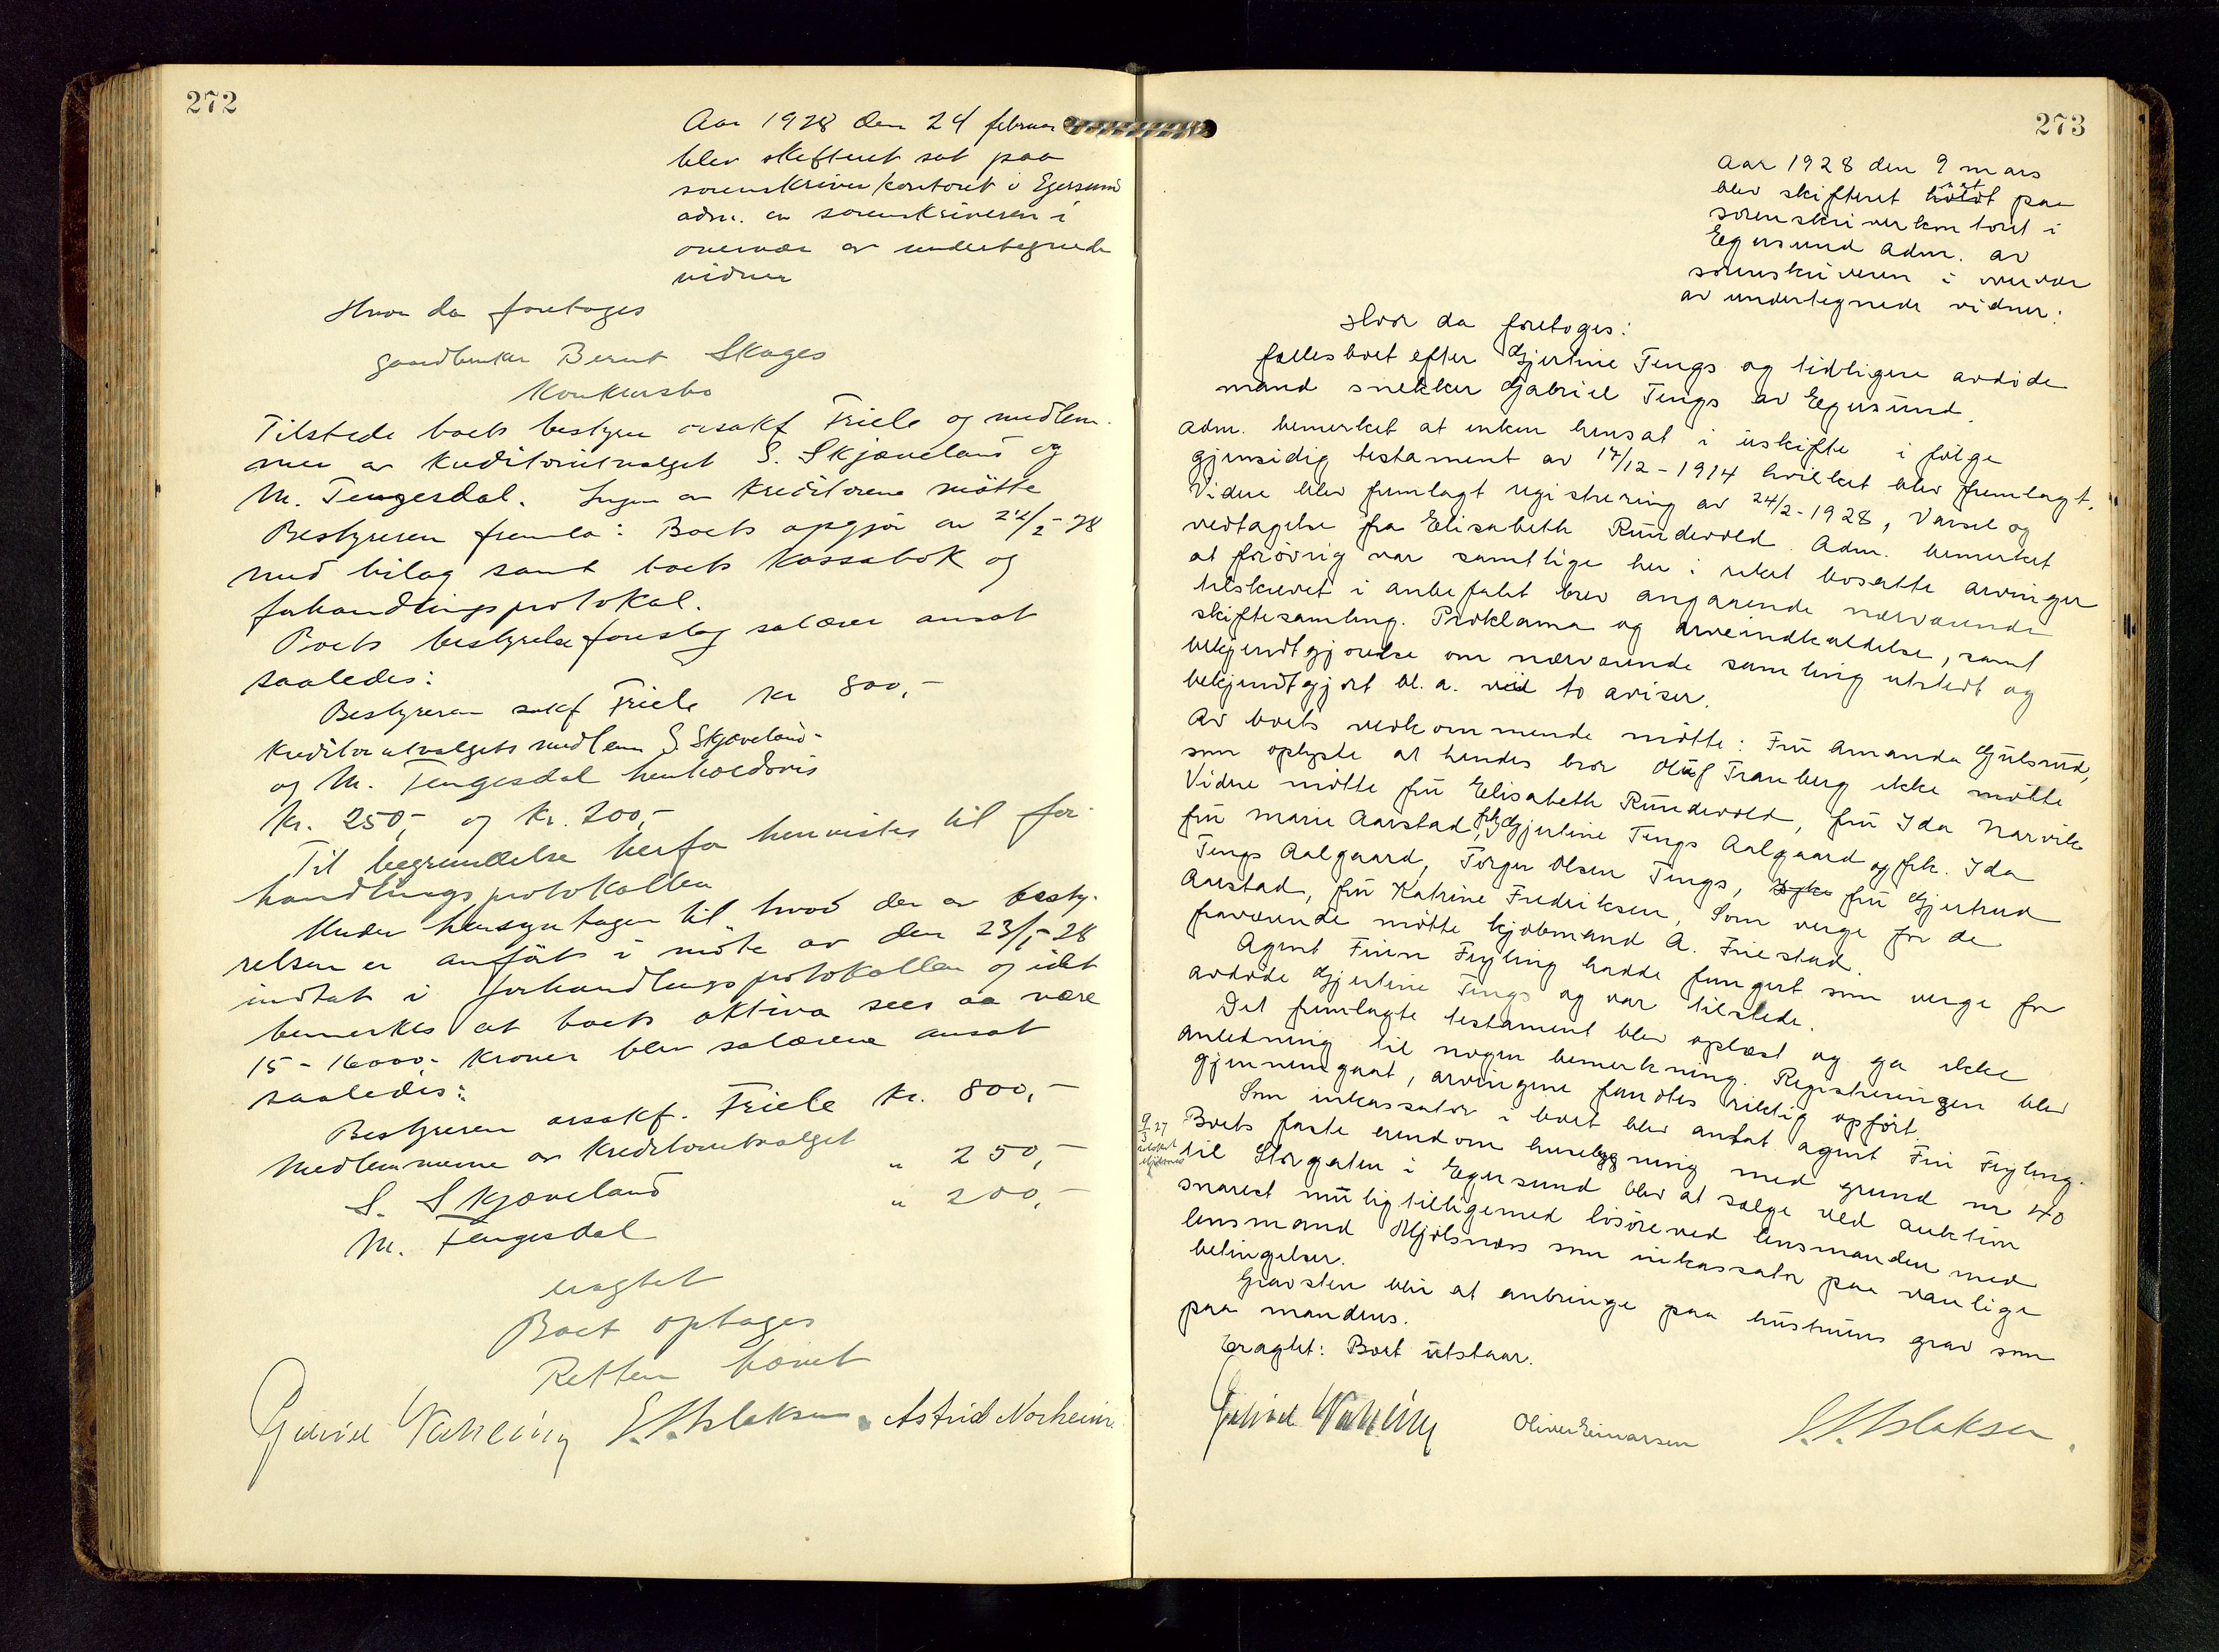 272
Aar 1928 den 24 februar
blev skifteret sat paa
sorenskriverkontoret i Egersund
adm. av sorenskriveren i
overvær av undertegnede
vidner
Hvor da foretoges
gaardbruker Bernt Skages
Konkursbo
Tilstede boets bestyrer orsakf Friele og medlem-
mer av kreditorutvalget S. Skjæveland og
M. Tengesdal. Ingen av kreditorene mötte
Bestyreren fremla: Boets opgjör av 22/2-28
med bilag samt boets kassabok og
forhandlingsprotokol.
Boets bestyrelse foreslog salærer ansat
saaledes:
Bestyreren sakf Friele kr 800,-
Kreditorutvalgets medlem S. Skjæveland-
og M. Tengesdal henholdsvis
Kr. 250,- og Kr. 200,-
Til begrundelse herfor henvistes til for-
handlingsprotokollen
Under hensyntagen til hvad der av besty-
relsen er anfört i möte av den 23/1-28
indtat i forhandlingsprotokollen og idet
bemerkes at boets aktiva sees aa være
15-16000- kroner blev salærene ansat
saaledes:
Bestyreren orsakf. Friele kr. 800,-
Medlemmerne av kreditorutvalget
S. Skjæveland " 250,-
M. Tengesdal " 200,-
eragtet
Boet optages
Retten hævet
Gabriel Vahling E. S. Islaksen. Astrid Norheim.
273
Aar 1928 den 9 mars
blev skifteret holdt sat paa
sorenskriverkontoret i
Egersund adm. av
sorenskriveren i overvær
av undertegnede vidner:
Hvor da foretoges:
fællesboet efter Gjertine Tengs og tidligere avdöde
mand snekker Gabriel Tengs av Egersund.
Adm. bemerket at enken hensat i uskifte i fölge
gjensidig testament av 17/12-1914 hvilket blev fremlagt.
Videre blev fremlagt registrering av 24/2-1928, Varsel og
vedtagelse fra Elisabeth Rundevold. Adm. bemerket
at forövrig var samtlige her i riket bosatte arvinger
tilskrevet i anbefalet brev angaaende nærværende
skiftesamling. Proklama og arveindkaldelse, samt
bekjendtgjorelse om nærværende samling utstedt og
bekjendtgjort bl. a. ved to aviser.
Av boets vedkommende mötte: Fru Amanda Gjulsrud,
som oplyste at hendes bror Oluf Tranberg ikke mötte
Videre mötte fru Elisabeth Rundevold, fru Ida Narvik
fru Marie Aarstad, frk Gjertine Tengs Aalgaard og frk. Ida
Tengs Aalgaard, Torger Olsen Tengs, fru Gjertrud
Aarstad, fru Katrine Fredriksen, Som verge for de
fraværende mötte kjöbmand A. Friestad.
Agent Finn Feyling hadde fungert som verge for
avdöde Gjertine Tengs og var tilstede.
Det fremlagte testament blev oplæst og ga ikke
anledning til nogen bemerkning. Registreringen blev
gjennemgaat, arvingene fandtes riktig opfört.
Som inkassator i boet blev antat agent Fin Feyling.
Boets faste eiendom husebygning med grund nr 40
til Storgaten i Egersund blev at sælge ved auktion
snarest mulig tilligemed lösöre ved lensmanden med
lensmand Mjölsnæs som inkassator paa vanlige
betingelser.
Gravsten blir at anbringe paa hustruens grav som
paa mandens.
Eragtet: Boet utstaar.
Gabriel Vahling Oliver Einarsen E. S. Islaksen.